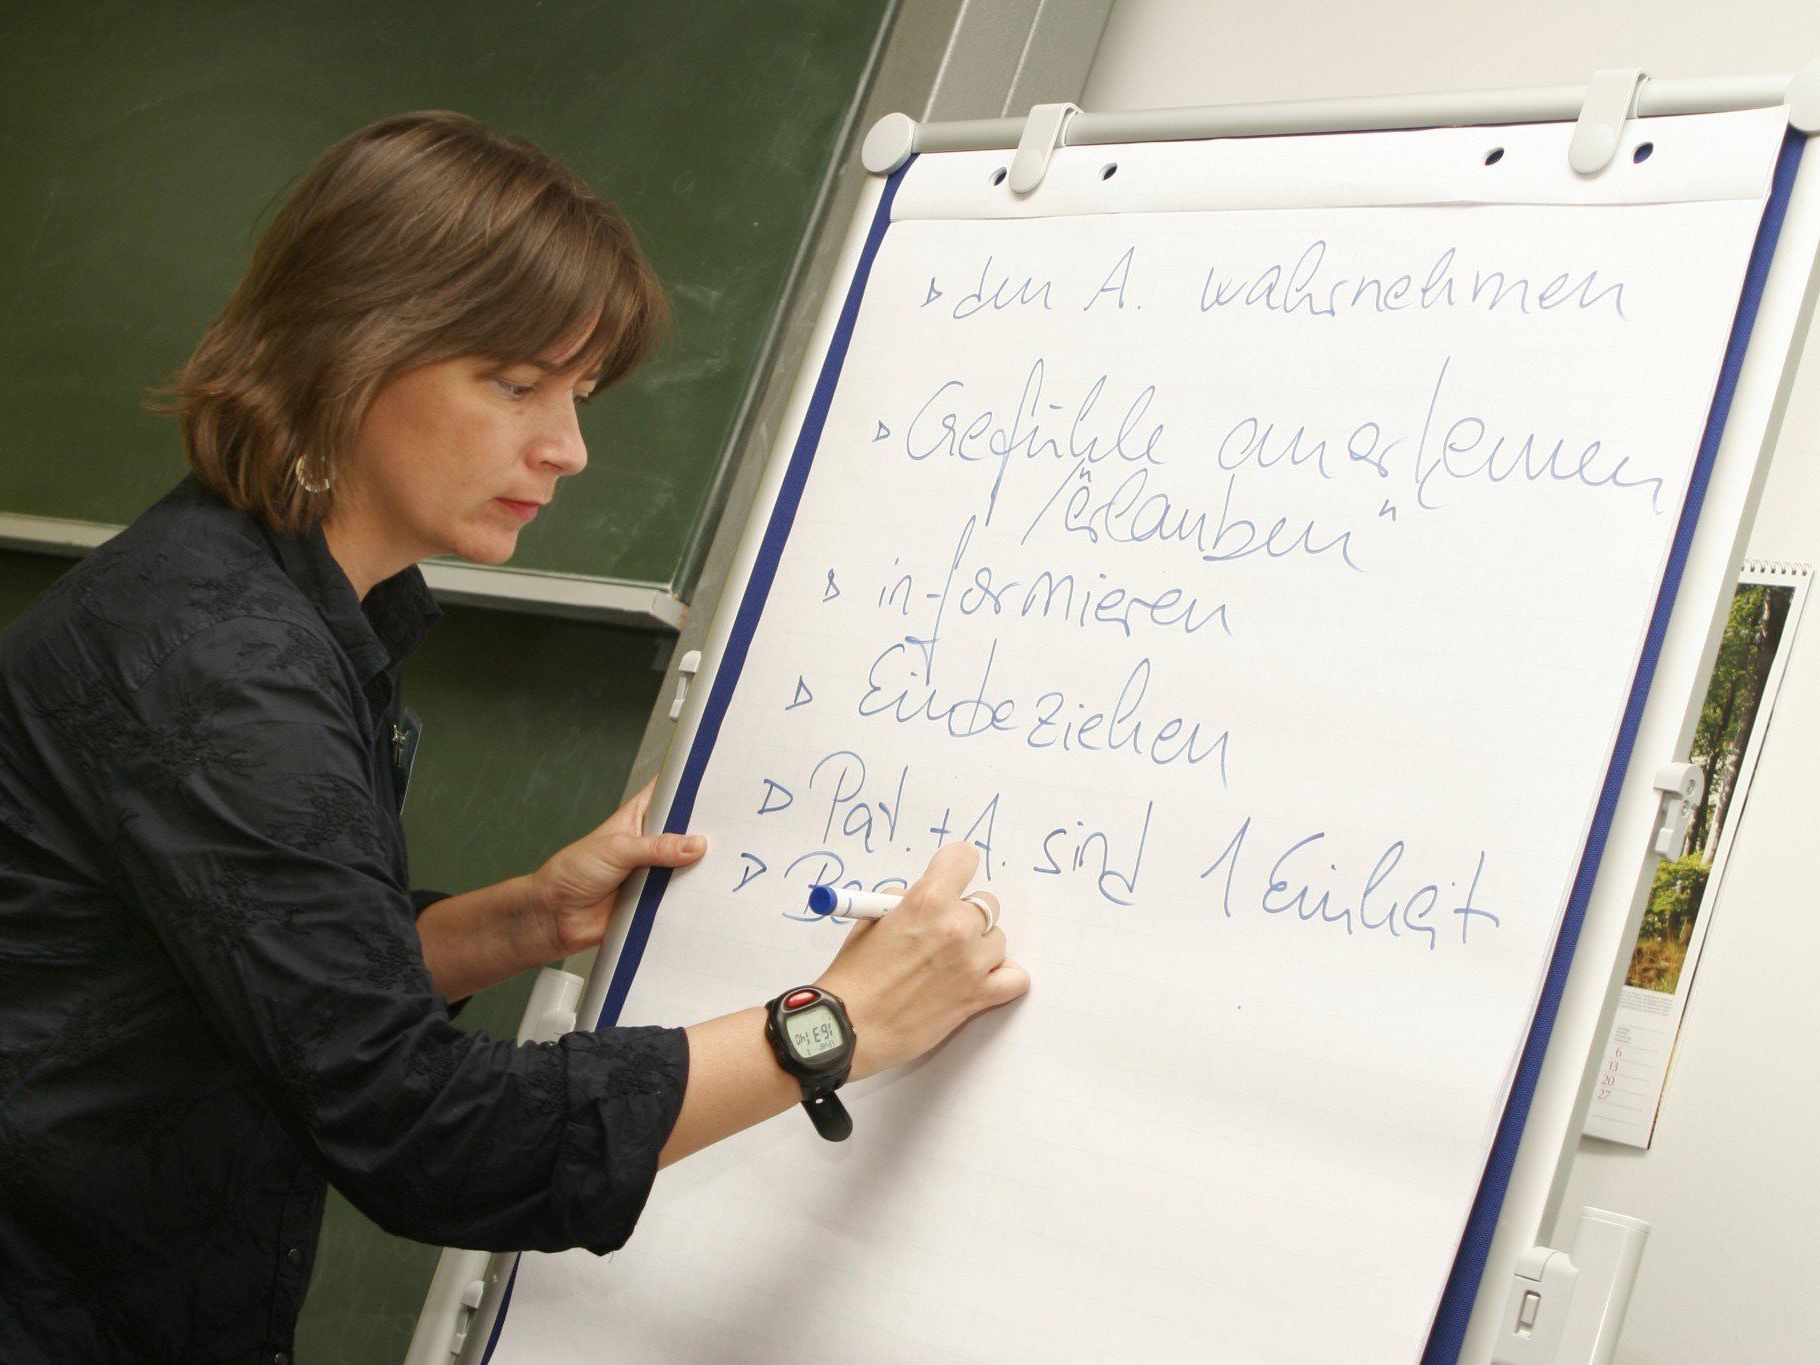 ▷ den A. wahrnehmen
▷ Gefühle anerkennen
/"erlauben"
▷ informieren
▷ Einbeziehen
▷ Pat. + A. sind 1 Einheit
▷
6
13
20
27